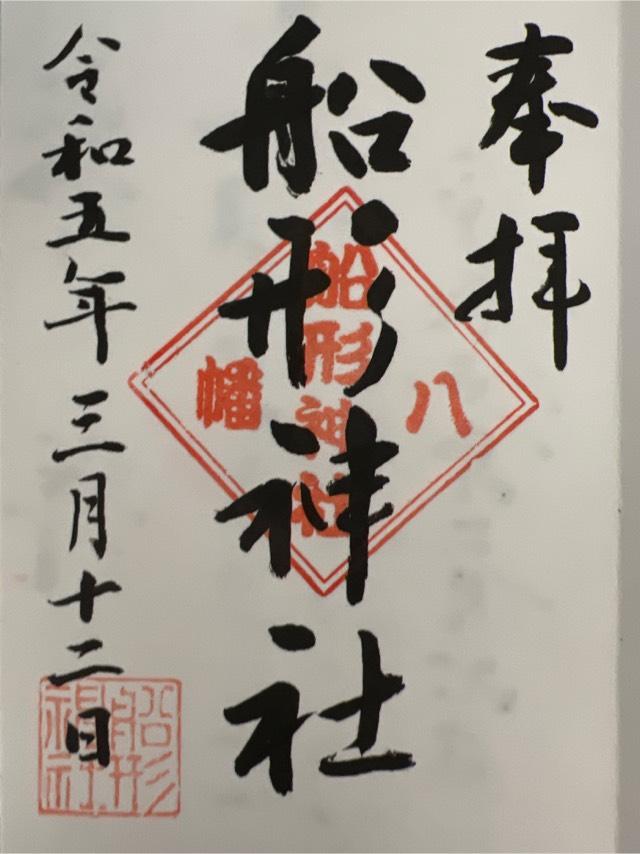 奉拝
船形神社
八幡
船形神社
令和五年三月十二日
船形
神社